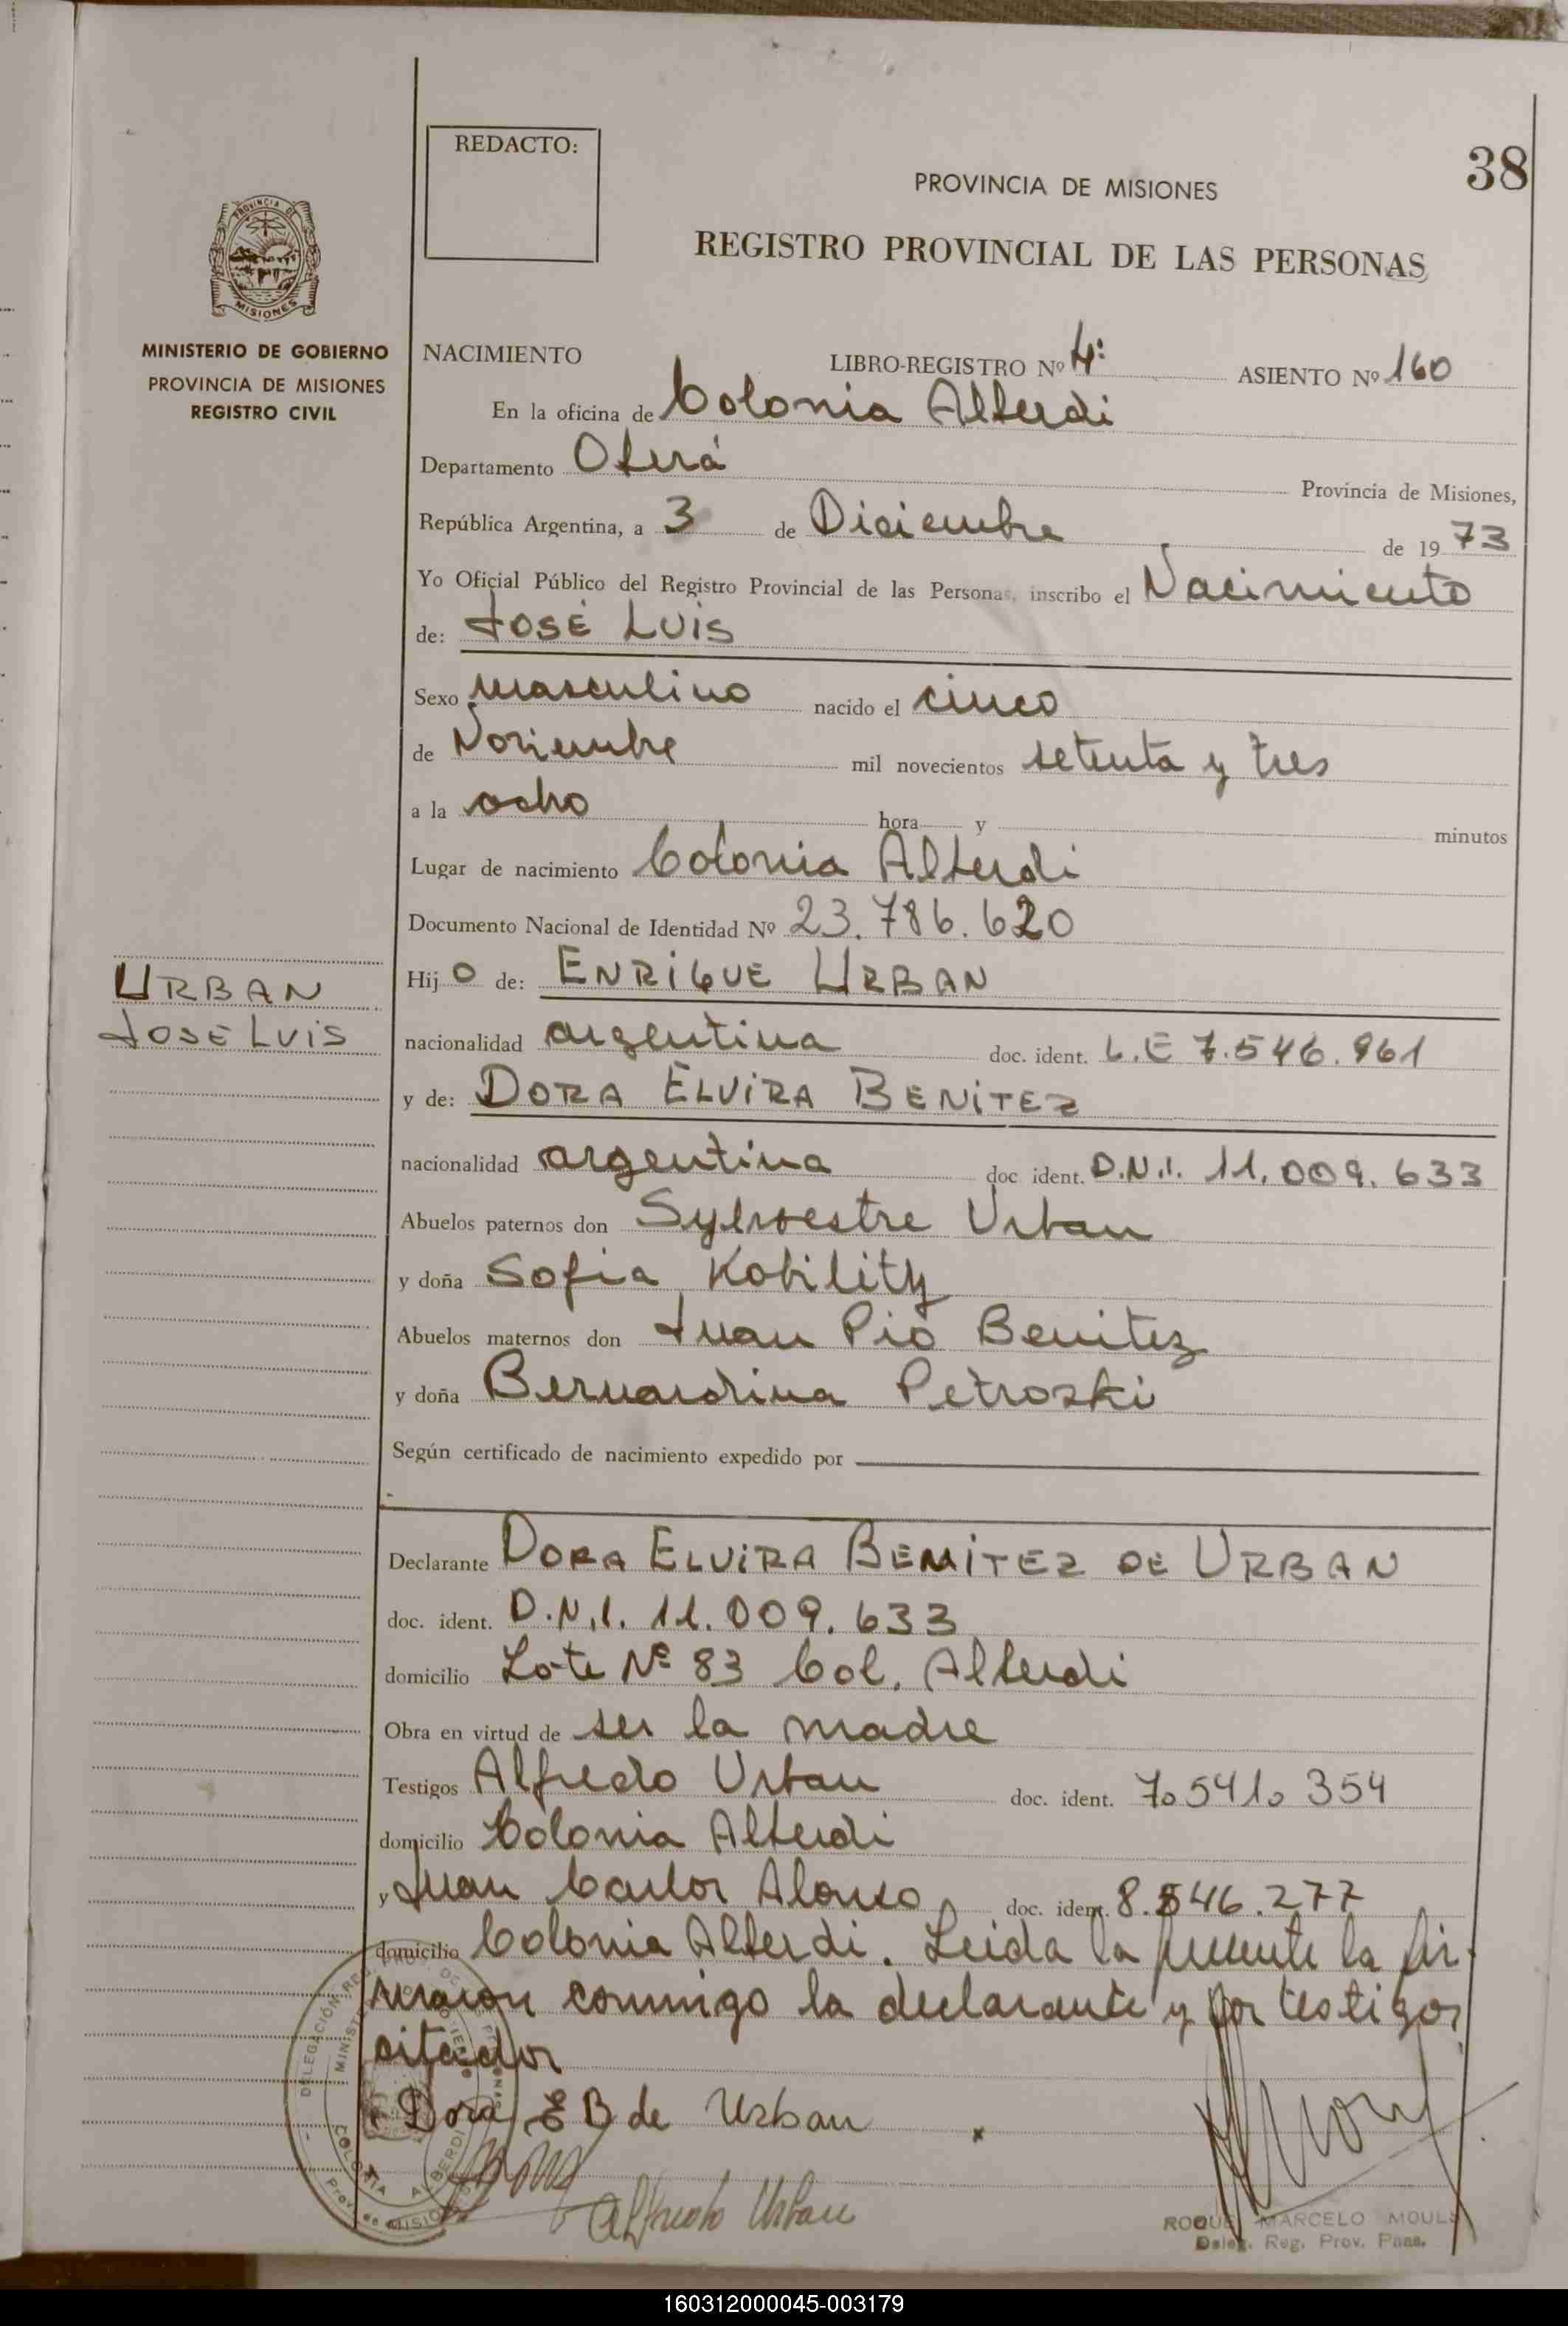 REDACTO:
38
PROVINCIA DE MISIONES
REGISTRO PROVINCIAL DE LAS PERSONAS
PROVINCIA DE
MISIONES
MINISTERIO DE GOBIERNO
PROVINCIA DE MISIONES
REGISTRO CIVIL
NACIMIENTO LIBRO-REGISTRO Nº 4º ASIENTO Nº 160
En la oficina de Colonia Alberdi
Departamento Oberá Provincia de Misiones,
República Argentina, a 3 de Diciembre de 1973
Yo Oficial Público del Registro Provincial de las Personas, inscribo el Nacimiento
de: JOSÉ LUIS
Sexo masculino nacido el cinco
de Noviembre mil novecientos setenta y tres
a la ocho hora y minutos
Lugar de nacimiento Colonia Alberdi
Documento Nacional de Identidad Nº 23.786.620
URBAN
JOSE LUIS
Hijo de: ENRIQUE URBAN
nacionalidad argentina doc. ident. L.E 7.546.961
y de: DORA ELVIRA BENITEZ
nacionalidad argentina doc ident. D.N.I. 11.009.633
Abuelos paternos don Sylvestre Urban
y doña Sofia Kobility
Abuelos maternos don Juan Pio Benitez
y doña Bernardina Petroski
Según certificado de nacimiento expedido por
Declarante DORA ELVIRA BENITEZ DE URBAN
doc. ident. D.N.I. 11.009.633
domicilio Lote Nº 83 Col. Alberdi
Obra en virtud de ser la madre
Testigos Alfredo Urban doc. ident. 7.541.354
domicilio Colonia Alberdi
y Juan Carlos Alonso doc. ident. 8.546.277
domicilio Colonia Alberdi. Leida la presente la fir-
maron conmigo la declarante y los testigos
citados
Dora E B de Urban
Alfredo Urban
ROQUE MARCELO MOULS
Deleg. Reg. Prov. Pnas.
160312000045-003179